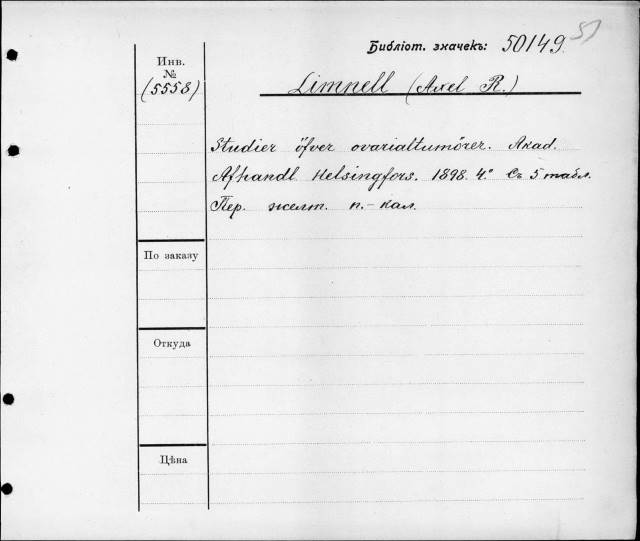 51
Библіот. значекъ: 50149
Инв.
№
(5558)
Limnell (Axel R.)
Studier öfver ovarialtumörer. Akad.
Afhandl. Helsingfors. 1898. 4° Съ 5 табл.
Пер. желт. п.-кал.
По заказу
Откуда
Цѣна